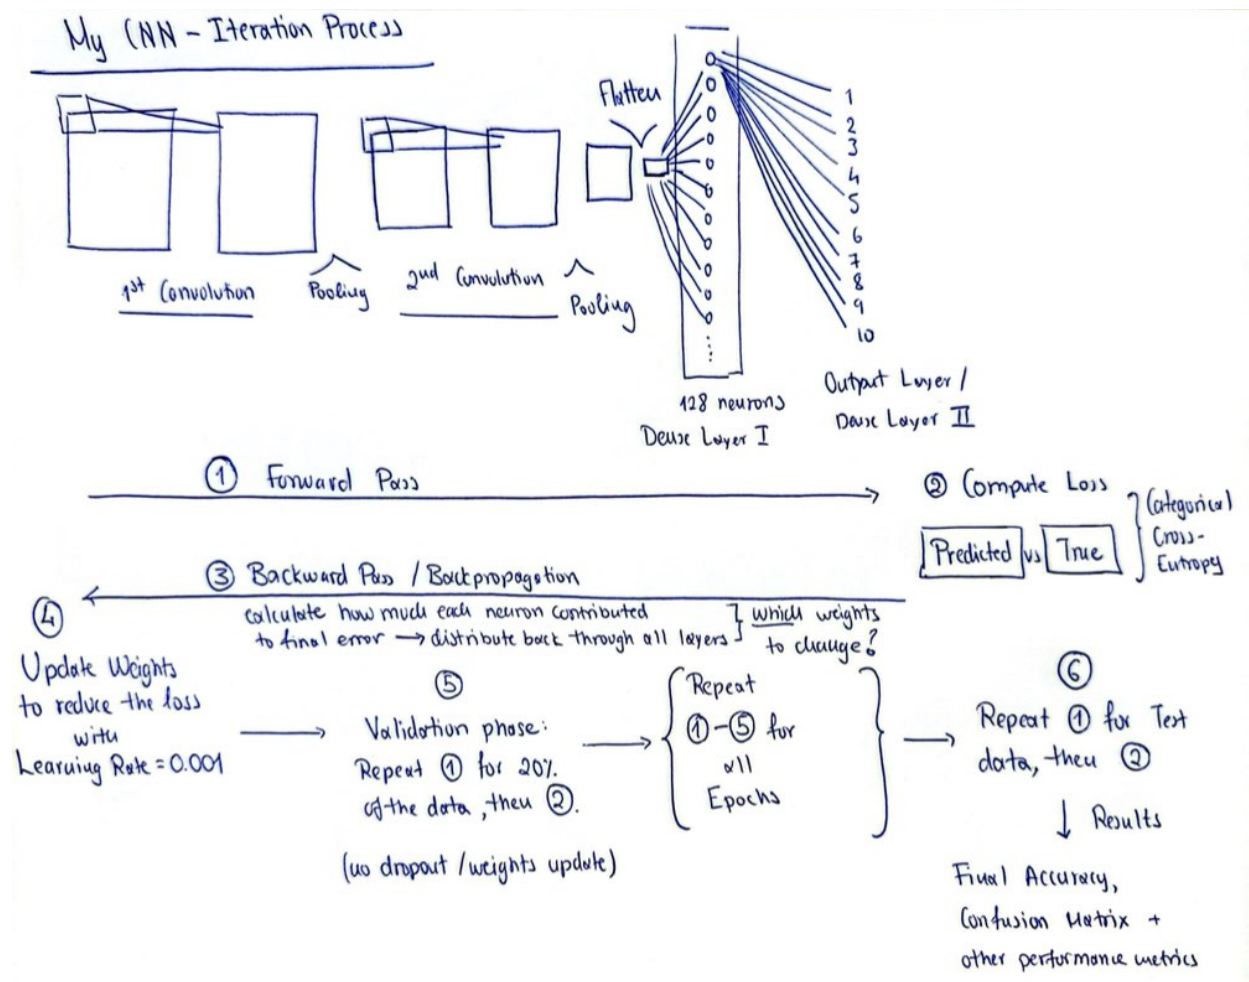 My CNN - Iteration Process
Flatten
1
2
3
4
5
6
7
8
9
10
1st Convolution
Pooling
2nd Convolution
Pooling
128 neurons
Dense Layer I
Output Layer /
Dense Layer II
① Forward Pass
② Compute Loss
Predicted vs True
Categorical
Cross-
Entropy
③ Backward Pass / Backpropagation
calculate how much each neuron contributed
to final error → distribute back through all layers
which weights
to change?
④
Update Weights
to reduce the loss
with
Learning Rate = 0.001
⑤
Validation phase:
Repeat ① for 20%
of the data, then ②.
(no dropout / weights update)
Repeat
①-⑤ for
all
Epochs
⑥
Repeat ① for Test
data, then ②
↓ Results
Final Accuracy,
Confusion Matrix +
other performance metrics